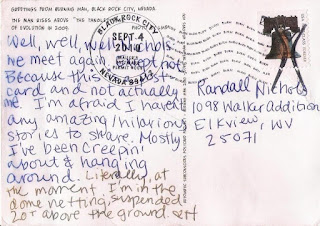 GREETINGS FROM BURNING MAN, BLACK ROCK CITY, NEVADA.
THE MAN RISES ABOVE "THE
OF EVOLUTION IN 2009.
BLACK ROCK CITY
SEPT 4
2010
NEVADA 89412
Well, well, well Nichols
we meet again. Except not
Because this is a post
card and not actually
me. I'm afraid I haven't
any amazing/hilarious
stories to share. Mostly
I've been Creepin'
about & hanging
around. Literally, at
the moment I'm in the
dome netting, suspended
20+ above the ground.
Randall Nichols
1098 Walker Addition
Elkview, WV
25071